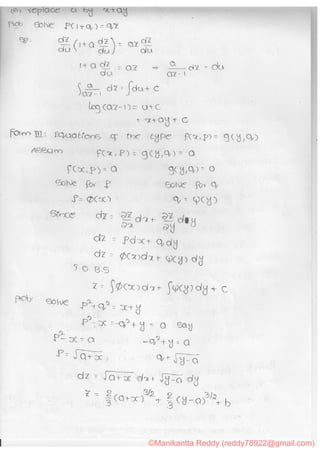 (iii) replace u by x+ay
Pbb: Solve P(1+q) = qz
Sol: dz/du (1+a dz/du) = az dz/du
1+a dz/du = az ⇒ a/(az-1) dz = du
∫ a/(az-1) dz = ∫du + c
log(az-1) = u+c
= x+ay+c
Form III: Equations of the type f(x,p) = g(y,q)
Assum f(x,p) = g(y,q) = a
f(x,p) = a g(y,q) = a
Solve for p Solve for q
p = ∅(x) q = ψ(y)
Since dz = ∂z/∂x dx + ∂z/∂y dy
dz = Pdx + q dy
dz = ∅(x)dx + ψ(y) dy
S.O.B.S
z = ∫∅(x)dx + ∫ψ(y) dy + c
Pbb: Solve p²+q² = x+y
p²-x = -q²+y = a say
p²-x = a -q²+y = a
p = √a+x, q = √y-a
dz = √a+x dx + √y-a dy
z = 2/3 (a+x)^3/2 + 2/3 (y-a)^3/2 + b
©Manikantta Reddy (reddy78922@gmail.com)